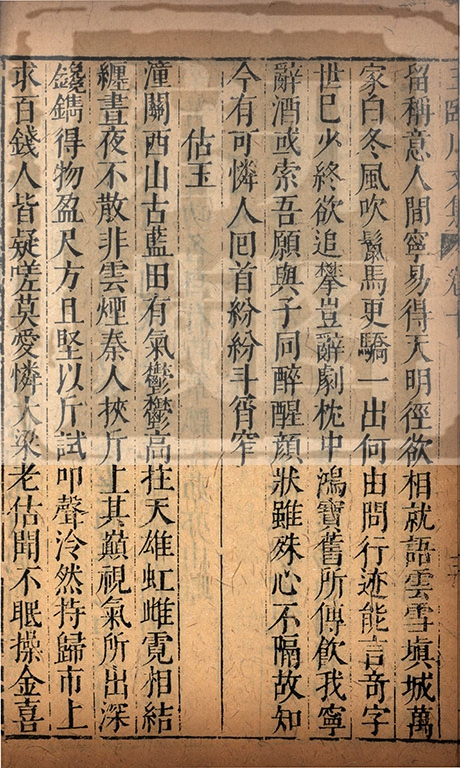 王臨川文集 卷十
留稱意人間寧易得天明徑欲相就語雲雪塡城萬
家白冬風吹鬣馬更驕一出何由問行迹能言奇字
世已少終欲追攀豈辭劇枕中鴻寶舊所傳飮我寧
辭酒或索吾願與子同醉醒顏狀雖殊心不隔故知
今有可憐人回首紛紛斗筲窄
估玉
潼關西山古藍田有氣鬱鬱高拄天雄虹雌霓相結
纏晝夜不散非雲煙秦人挾斤上其巔視氣所出深
鑱鐫得物盈尺方且堅以斤試叩聲泠然持歸市上
求百錢人皆疑嗟莫愛憐大梁老估聞不眠操金喜